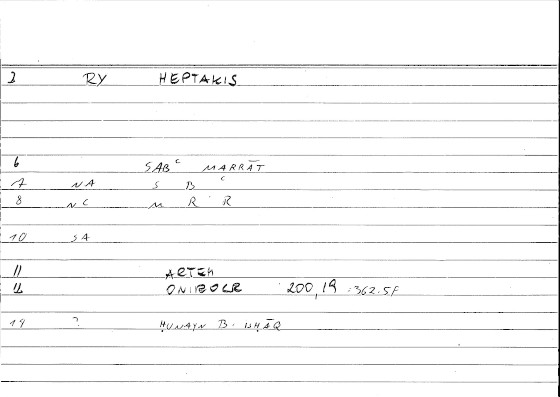 1 RY HEPTAKIS
6 SABᶜ MARRĀT
7 NA S B ᶜ
8 NC M R R
10 SA
11 ARTEM
12 ONIROCR 200,19 :362.5F
14 ? ḤUNAYN B. ISḤĀQ